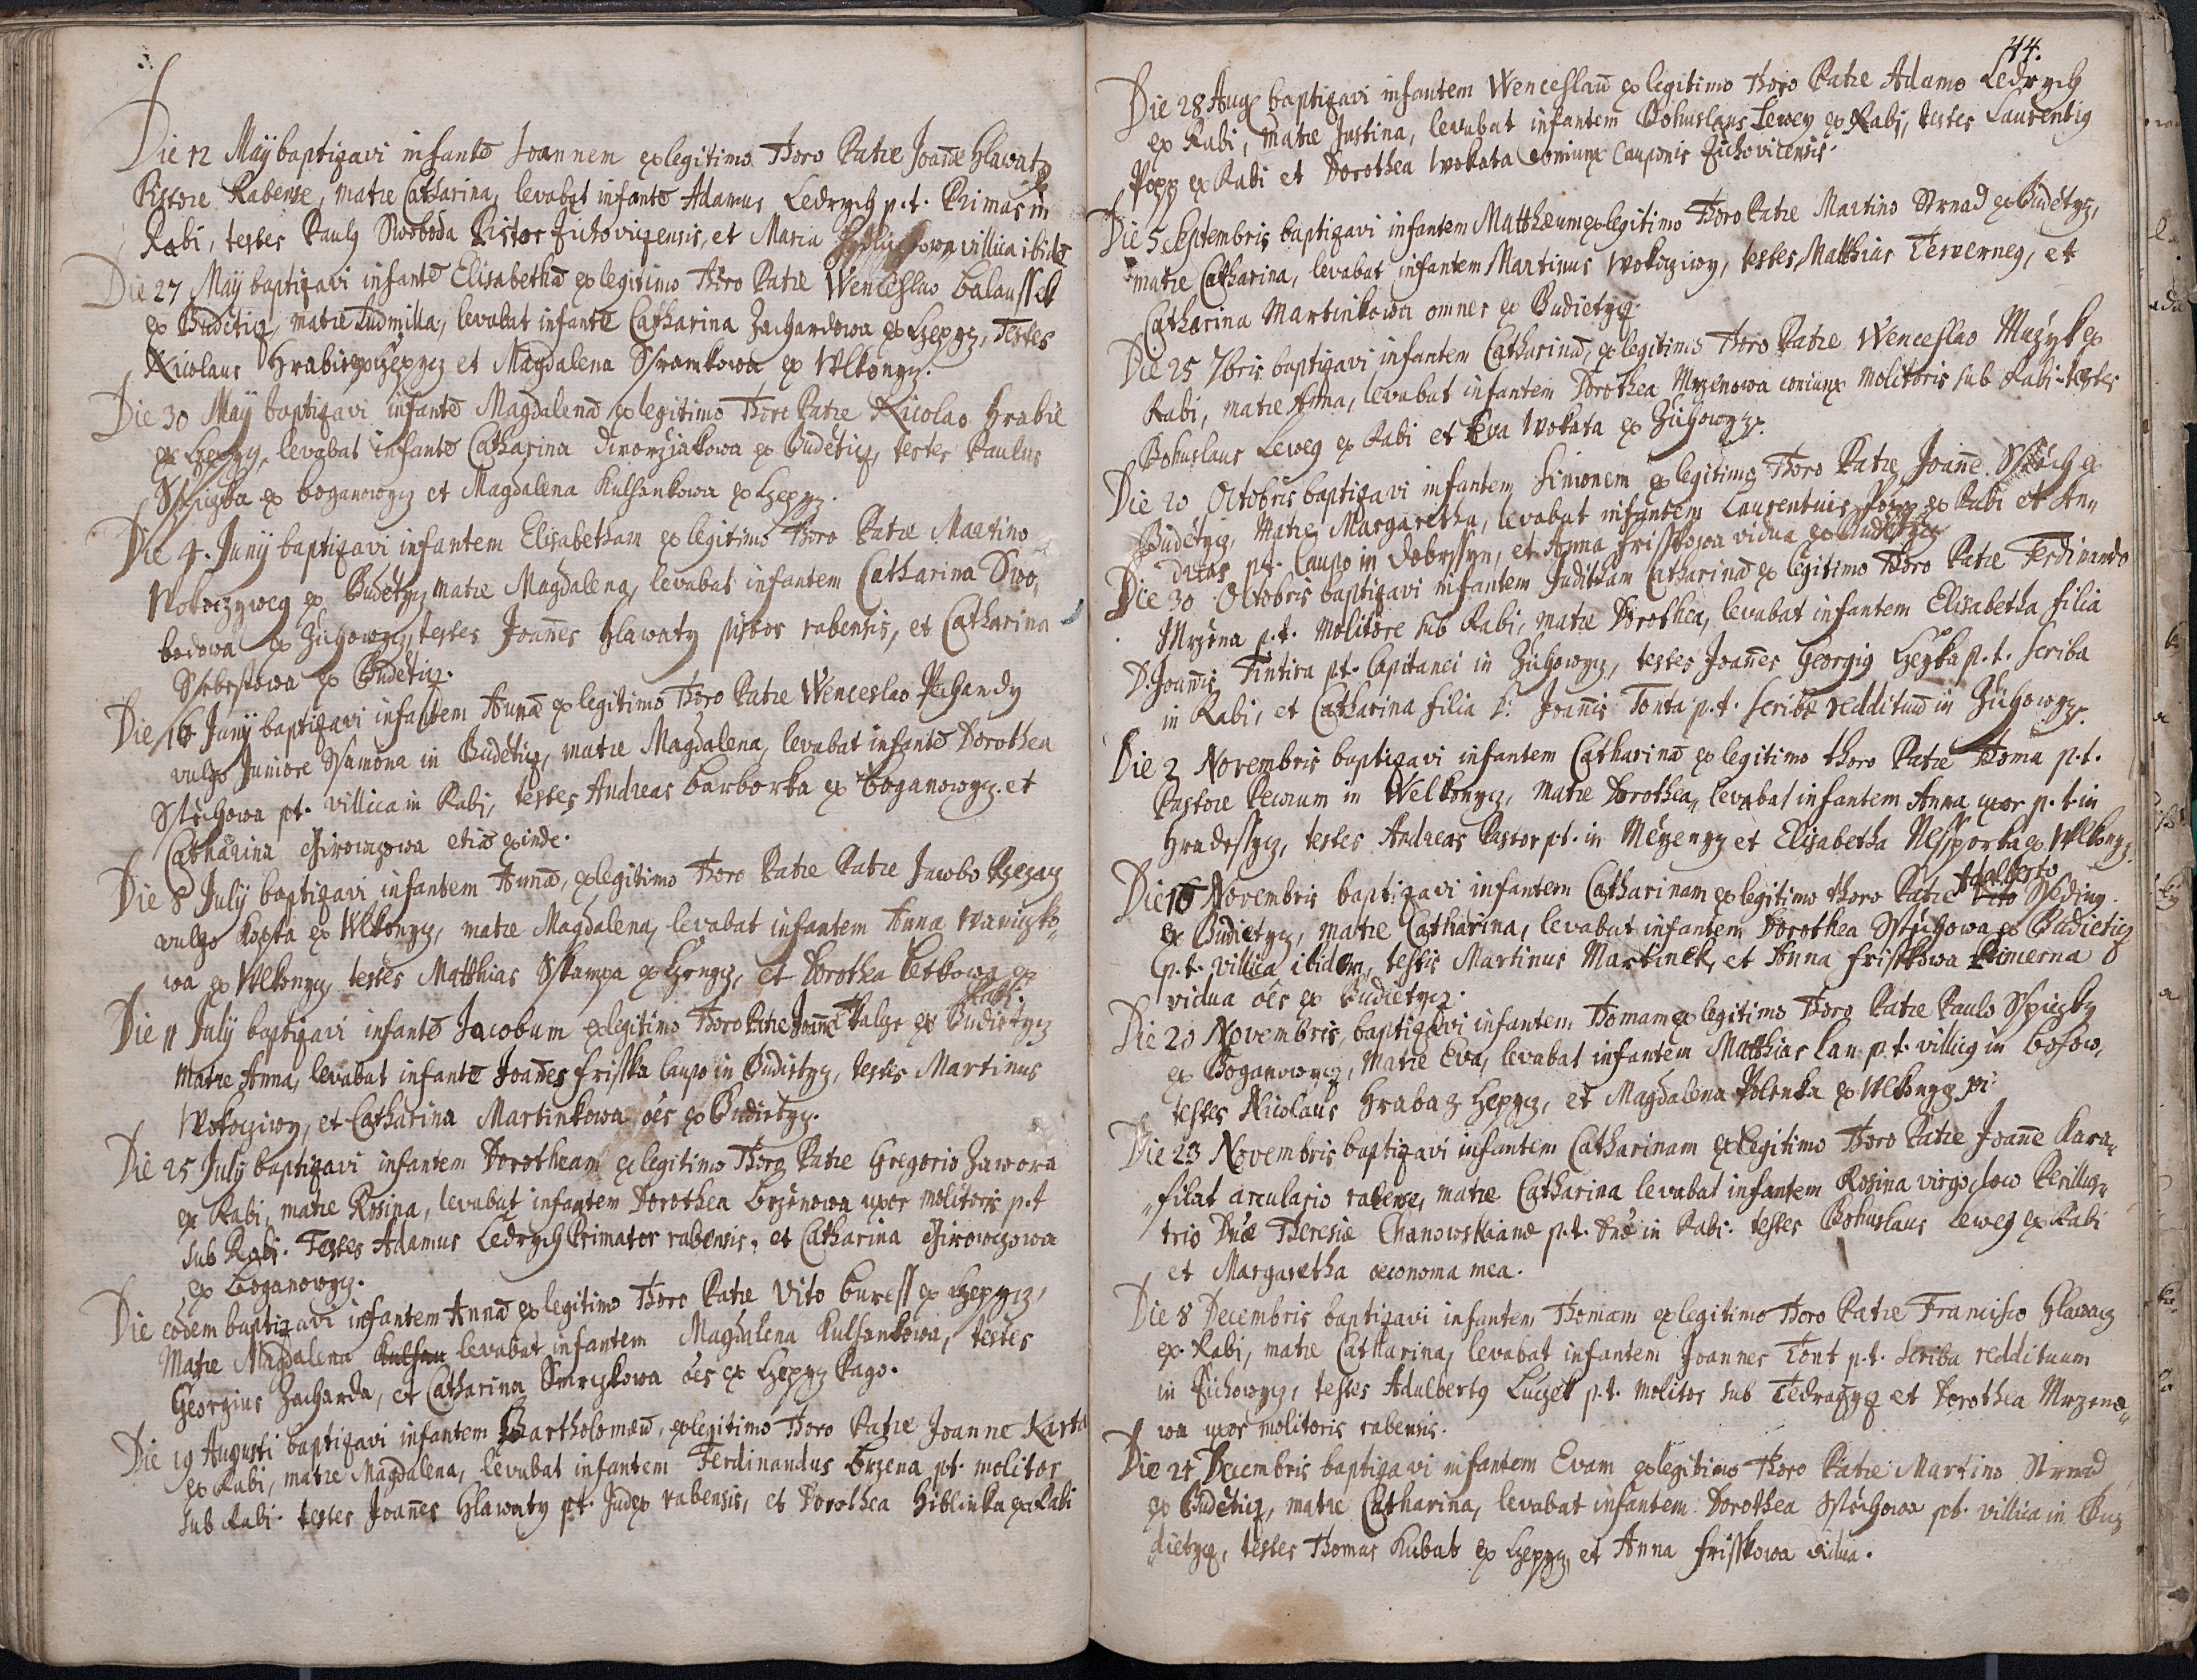 Die 12 Maÿ baptizavi infantē Joannem ex legitimo Thoro Patre Joañe Hlawatz
Pistore Rabense, matre Catharina, levabat infantē Adamus Ledrych p.t. Primas in
Rabi, testes Pauly Swoboda Pistor Zichoviczensis, et Maria villica ibidē
Die 27 Maÿ baptizavi infantē Elisabethā ex legitimo Thoro Patre Wenceslao Balaussek
ex Budieticz, matre Ludmilla, levabat infantē Catharina Zachardowa ex Czepycz, Testes
Nicolaus Hrabie ex Czepycz et Magdalena Sframkowa ex Wlkonycz.
Die 30 Maÿ baptizavi infantē Magdalenā ex legitimo Thoro Patre Nicolao Hrabie
ex Czepycz, levabat infantē Catharina dworziakowa ex Budeticz, testes Paulus
Sspiczka ex boganowycz et Magdalena Kulhankowa ex Czepycz.
Die 4. Junÿ baptizavi infantem Elisabetham ex legitimo Thoro Patre Martino
Wokaczyweg ex Budetycz matre Magdalena, levabat infantem Catharina Swo,
bodowa ex Zichowycz, testes Joañes Hlawaty pistor rabensis, et Catharina
Ssebestowa ex Budeticz.
Die 16 Junÿ baptizavi infantem Annā ex legitimo Thoro Patre Wenceslao Pechandy
vulgo Juniore Ssamona in Budeticz, matre Magdalena, levabat infantē Dorothea
Sstichowa pt. villica in Rabi, testes Andreas barborka ex boganowycz et
Catharina Girowczowa etiā exinde.
Die 8 Julÿ baptizavi infantem Annā, ex legitimo Thoro Patre Patre Jacobo Rzezacz
vulgo Kopta ex Wlkonycz, matre Magdalena, levabat infantem Anna Waniczko,
wa ex Wlkonycz, testes Matthias Sskampa ex Czepycz, et Dorothea Petkowa ex
Rabi.
Die 11 Julÿ baptizavi infantē Jacobum ex legitimo Thoro Patre Joañe Halze ex Budietycz
matre Anna, levabat infantē Joañes frisska caupo in Budietycz, testes Martinus
Wokacziwy, et Catharina Martinkowa oēs ex Budietycz.
Die 25 Julÿ baptizavi infantem Dorotheam ex legitimo Thoro Patre Gregorio Zawora
ex Rabi, matre Rosina, levabat infantem Dorothea Brzenowa uxor molitoris p.t
sub Rabi. Testes Adamus Ledrych Primator rabensis, et Catharina Girowczowa
ex boganowycz.
Die eodem baptizavi infantem Annā ex legitimo Thoro Patre Vito buress ex Czepycz,
Matre Magdalena Kulhan levabat infantem Magdalena Kulhankowa, testes
Georgius Zacharda, et Catharina Smrczkowa oēs ex Czepycz Pago.
Die 19 Augusti baptizavi infantem Bartholomæū, ex legitimo Thoro Patre Joanne Karta
ex Rabi, matre Magdalena, levabat infantem Ferdinandus brzena pt. molitor
sub Rabi. testes Joañes Hlawaty pt. Judex rabensis, et Dorothea Hiblinka ex Rabi
44.
Die 28 Aug baptizavi infantem Wenceslaū ex legitimo Thoro Patre Adamo Ledrych
ex Rabi, matre Justina, levabat infantem Bohuslaus Lewey ex Rabi, testes Laurentig
Popp ex Rabi et Dorothea Wokata coniunx cauponis Zichovicensis.
Die 5 Septembris baptizavi infantem Matthæum ex legitimo Thoro Patre Martino Strnad ex Budetycz,
matre Catharina, levabat infantem Martinus Wokacziwy, testes Matthias Terverneg, et
Catharina Martinkowa omnes ex Budietycz.
Die 25 7bris baptizavi infantem Catharinā, ex legitimo Thoro Patre Wenceslao Mazyk ex
Rabi, matre Anna, levabat infantem Dorothea Mrzenowa coniunx Molitoris sub Rabi testes
Bohuslaus Leweg ex Rabi et Eva Wokata ex Zichowycz.
Die 20 Octobris baptizavi infantem Simonem ex legitimo Thoro Patre Joañe ex
Budetycz, Matre Margaretha, levabat infantem Laurentius Popp ex Rabi et An,,
dreas pt. Caupo in dobrssyn, et Anna frisskowa vidua ex Budetycz
Die 30 Octobris baptizavi infantem Juditham Catharinā ex legitimo Thoro Patre Ferdinando
Mrzena p.t. Molitore sub Rabi, matre Dorothea, levabat infantem Elisabetha filia
D. Joañis Tintira pt. Capitanei in Zichowycz, testes Joañes Georgig Czeyka p.t. scriba
in Rabi, et Catharina filia D. Joañis Tonta p.t. scribæ reddituū in Zichowycz.
Die 2 Novembris baptizavi infantem Catharinā ex legitimo thoro Patre Thoma p.t.
Pastore Pecorum in Welkonycz, Matre Dorothea, levabat infantem Anna uxor p.t. in
Hradessycz, testes Andreas Pastor pt. in Mezenyz et Elisabetha Nessporka ex Wlkonycz.
Die 16 Novembris baptizavi infantem Catharinam ex legitimo thoro Patre Vito Adalberto Sседiny
ex Budietycz, matre Catharina, levabat infantem Dorothea Sstichowa ex Budieticz
p.t. villica ibidem, testis Martinus Martinek, et Anna frisskowa
vidua oēs ex Budietycz.
Die 20 Novembris, baptizavi infantem Thomam ex legitimo Thoro Patre Paulo Sspiczky
ex Boganowycz, Matre Eva, levabat infantem Matthias Lan p.t. villicg in bosow,
testes Nicolaus Hraba z Czepycz, et Magdalena Polenka ex Wlkonycz
Die 23 Novembris baptizavi infantem Catharinam ex legitimo Thoro Patre Joañe Kara,,
,,filat arculario rabense, matre Catharina levabat infantem Rosina virgo, loco Perillus,,
tris Dnæ Theresiæ Chanowskianæ p.t. Dnæ in Rabi. testes Bohuslaus Leweg ex Rabi
et Margaretha œconoma mea.
Die 8 Decembris baptizavi infantem Thomam ex legitimo Thoro Patre Francisco Hlawacz
ex Rabi, matre Catharina, levabat infantem Joannes Tont p.t. Scriba reddituum
in Zichowycz, testes Adalbertg Luczek p.t. molitor sub Tedrazycz et Dorothea Mrzeno,,
wa uxor molitoris rabensis.
Die 21 Decembris baptizavi infantem Evam ex legitimo Thoro Patre Martino Strnad
ex Budeticz, matre Catharina, levabat infantem Dorothea Sstichowa pt. villica in Bu,
,,dietycz, testes Thomas Kubat ex Czepycz, et Anna frisskowa vidua.